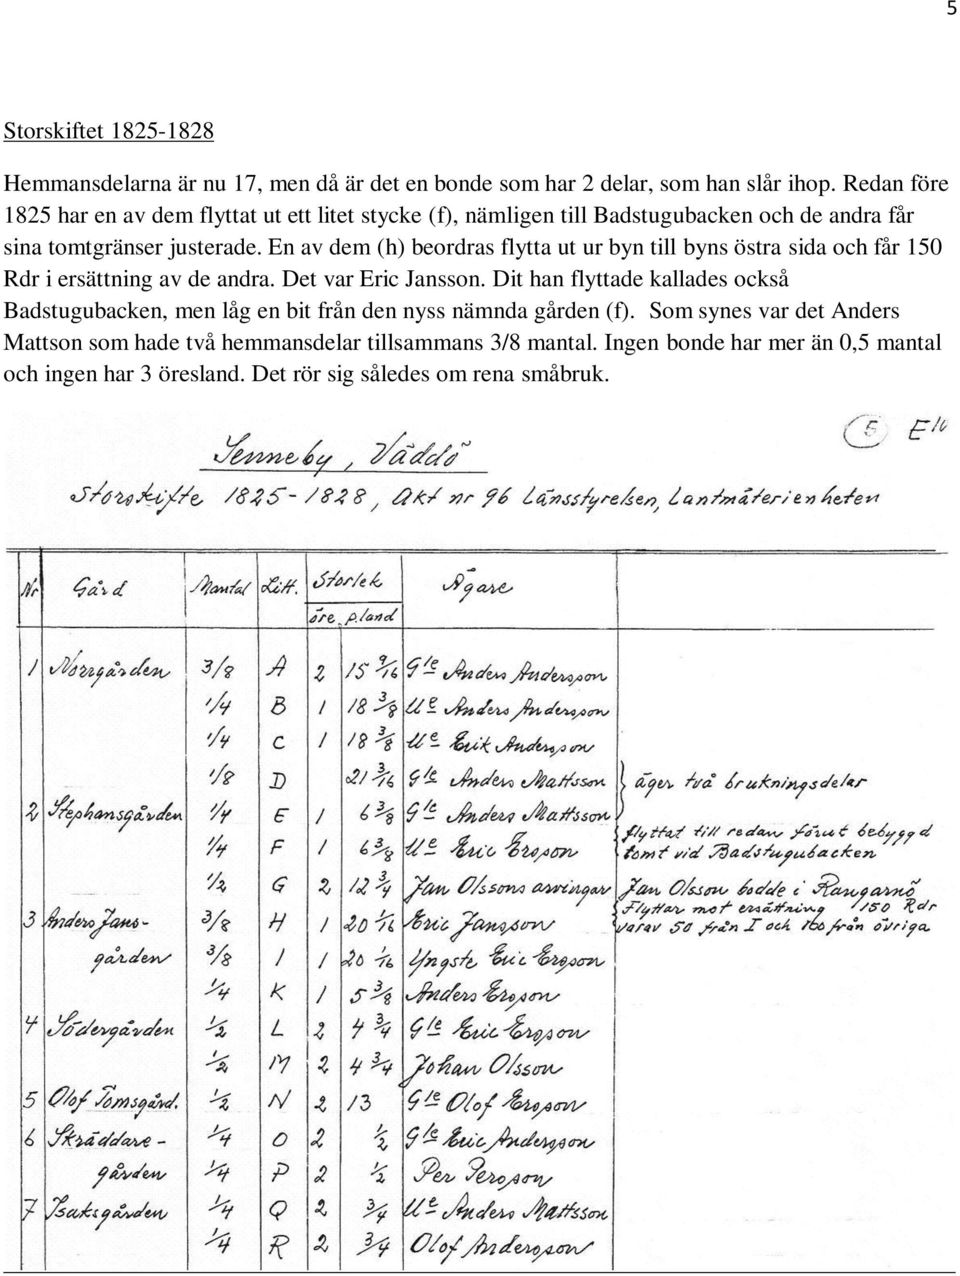 5
Storskiftet 1825-1828
Hemmansdelarna är nu 17, men då är det en bonde som har 2 delar, som han slår ihop. Redan före
1825 har en av dem flyttat ut ett litet stycke (f), nämligen till Badstugubacken och de andra får
sina tomtgränser justerade. En av dem (h) beordras flytta ut ur byn till byns östra sida och får 150
Rdr i ersättning av de andra. Det var Eric Jansson. Dit han flyttade kallades också
Badstugubacken, men låg en bit från den nyss nämnda gården (f). Som synes var det Anders
Mattson som hade två hemmansdelar tillsammans 3/8 mantal. Ingen bonde har mer än 0,5 mantal
och ingen har 3 öresland. Det rör sig således om rena småbruk.
Senneby, Väddö 5
Storskifte 1825-1828, Akt nr 96 Länsstyrelsen, Lantmäterienheten
Nr Gård Mantal Litt. Storlek Ägare
öre p.land
1 Norrgården 3/8 A 2 15 9/16 Gle Anders Andersson
1/4 B 1 18 3/8 Ue Anders Andersson
1/4 C 1 18 3/8 Ue Erik Andersson
1/8 D 21 3/16 Gle Anders Mattsson } äger två brukningsdelar
2 Stephansgården 1/4 E 1 6 3/8 Gle Anders Mattsson
1/4 F 1 6 3/8 Ue Eric Ersson { flyttat till redan förut bebyggd
tomt vid Badstugubacken
1/2 G 2 12 3/4 Jan Olssons arvingar Jan Olsson bodde i Rangarnö
3 Anders Jans- 3/8 H 1 20 1/16 Eric Jansson { Flyttar mot ersättning 150 Rdr
varav 50 från I och 100 från övriga
gården 3/8 I 1 20 1/16 Yngste Eric Ersson
1/4 K 1 5 3/8 Anders Ersson
4 Södergården 1/2 L 2 4 3/4 Gle Eric Ersson
1/2 M 2 4 3/4 Johan Olsson
5 Olof Tomsgård. 1/2 N 2 13 Gle Olof Ersson
6 Skräddare- 1/4 O 2 1/2 Gle Eric Andersson
gården 1/4 P 2 1/2 Per Persson
7 Isaksgården 1/4 Q 2 3/4 Ue Anders Mattsson
1/4 R 2 3/4 Olof Andersson